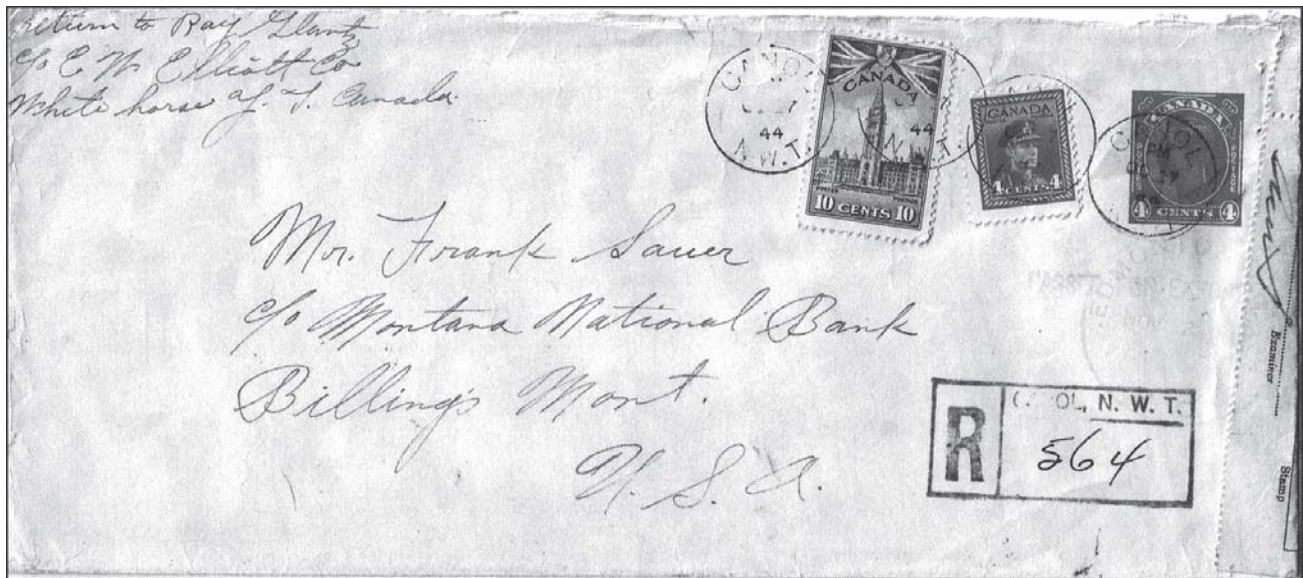 return to Ray Glantz
c/o E W Elliott Co
White horse Y. T. Canada
CANOL
44
N.W.T.
CANADA
10 CENTS 10
44
N.W.T.
CANADA
4 CENTS 4
CANOL
PM
CANADA
4 CENTS 4
Mr. Frank Sauer
c/o Montana National Bank
Billings Mont.
U. S. A.
NOV
Examiner
Stamp
R
OL, N. W. T.
564